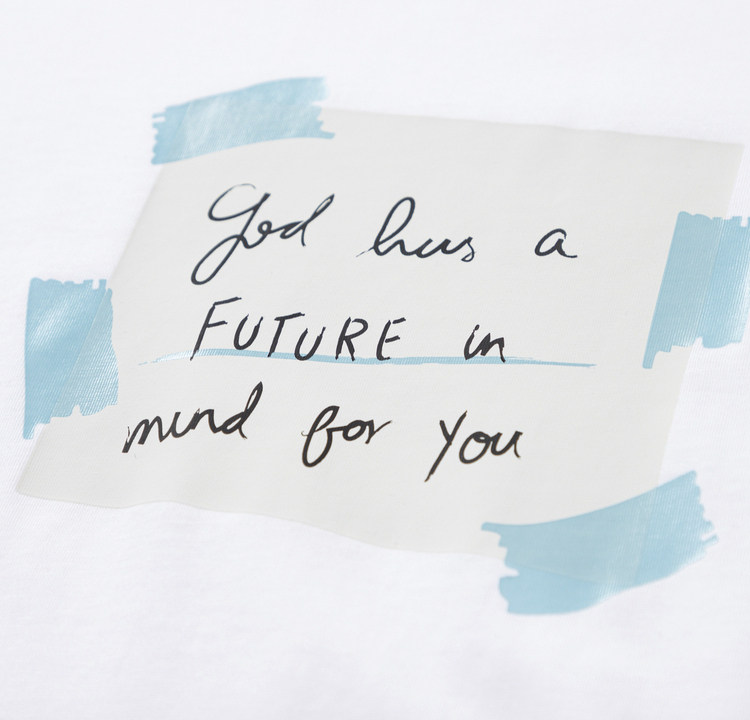 God has a
FUTURE in
mind for you